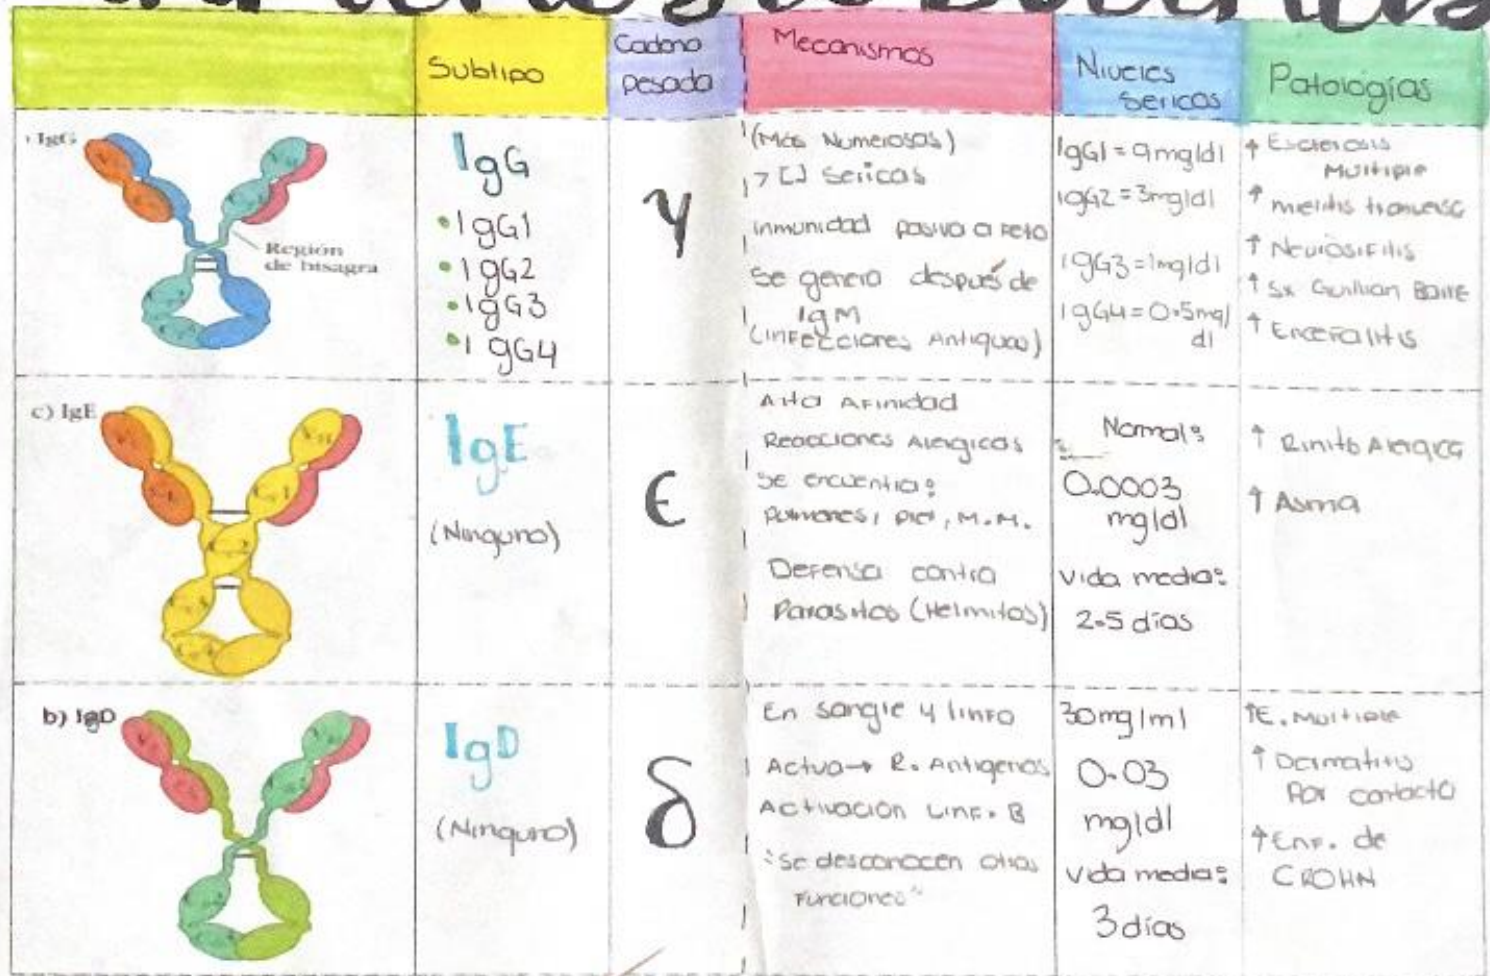 Subtipo
Cadena
pesada
Mecanismos
Niveles
Sericos
Patologías
IgG
Región
de bisagra
IgG
•IgG1
•IgG2
•IgG3
•IgG4
γ
(Más Numerosas)
> [] Sericas
inmunidad pasiva a Feto
Se genera después de
IgM
(infecciones Antiguas)
IgG1=9mg/dl
IgG2=3mg/dl
IgG3=1mg/dl
IgG4=0.5mg/
dl
↑ Esclerosis
Multiple
↑ mielitis transversa
↑ Neurosifilis
↑ Sx Guillian Barre
↑ Encefalitis
c) IgE
IgE
(Ninguno)
ϵ
Alta Afinidad
Reacciones Alergicas
Se encuentra:
Pulmones, piel, M.M.
Defensa contra
Parasitos (Helmitos)
Normal:
0.0003
mg/dl
Vida media:
2.5 días
↑ Rinitis Alergica
↑ Asma
b) IgD
IgD
(Ninguno)
δ
En sangre y linfa
Actua→ R. Antigenos
Activación Linf. B
"Se desconocen otras
Funciones"
30mg/ml
0.03
mg/dl
Vida media:
3 días
↑E. Multiple
↑ Dermatitis
Por contacto
↑Enf. de
CROHN